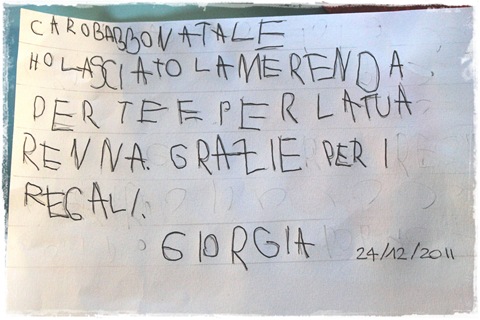 CARO BABBO NATALE
HO LASCIATO LA MERENDA
PER TE E PER LA TUA
RENNA. GRAZIE PER I
REGALI.
GIORGIA 24/12/2011